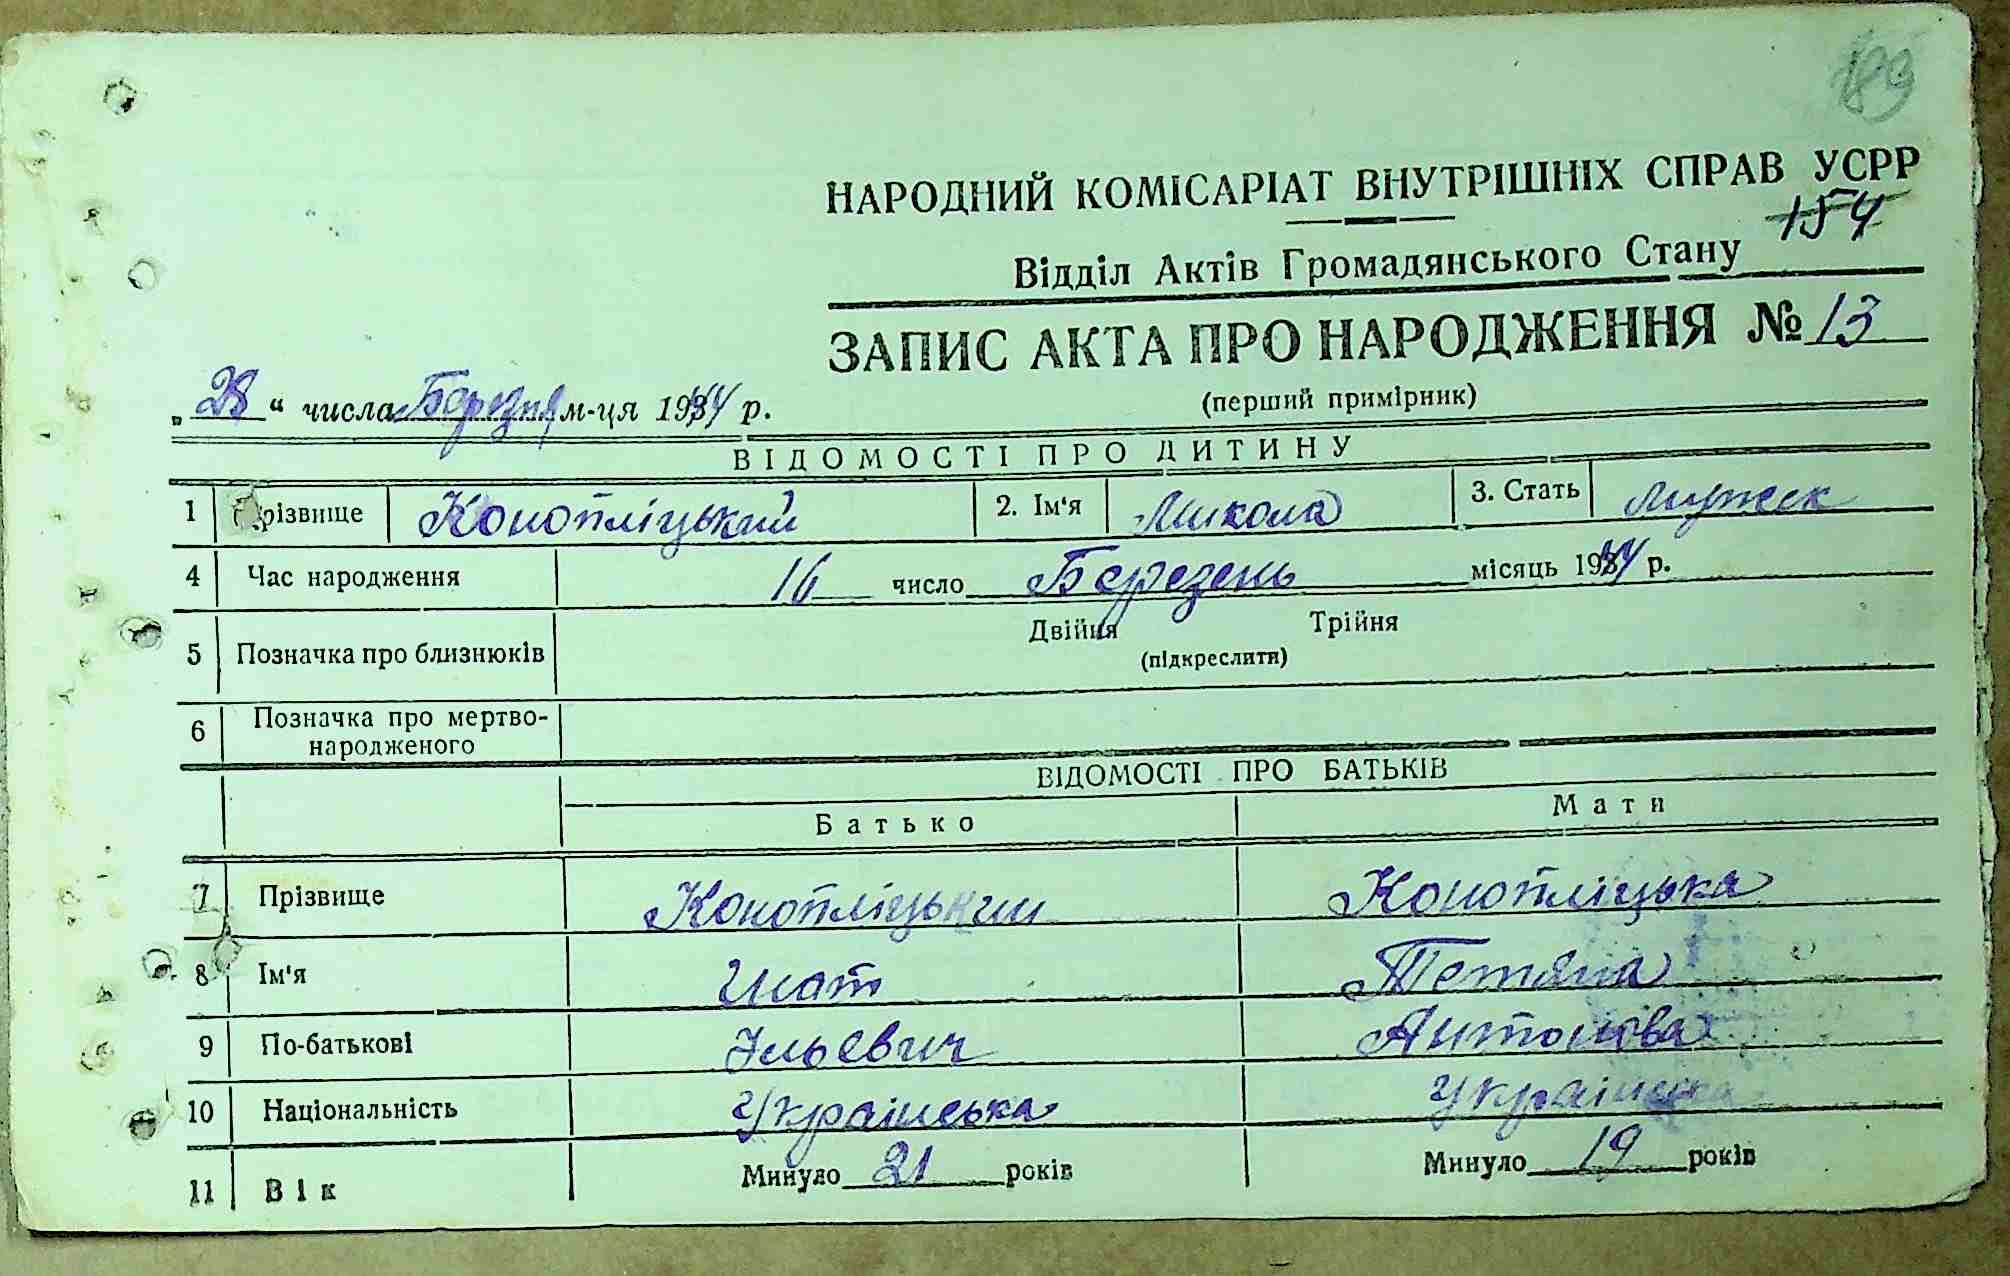 189
НАРОДНИЙ КОМІСАРІАТ ВНУТРІШНІХ СПРАВ УСРР
154
Відділ Актів Громадянського Стану
ЗАПИС АКТА ПРО НАРОДЖЕННЯ № 13
„28“ числа Березня м-ця 1934 р.
(перший примірник)
ВІДОМОСТІ ПРО ДИТИНУ
1 Прізвище Конопліцький 2. Ім'я Микола 3. Стать мужск
4 Час народження 16 число Березень місяць 1934 р.
5 Позначка про близнюків Двійня Трійня
(підкреслити)
6 Позначка про мертво-
народженого
ВІДОМОСТІ ПРО БАТЬКІВ
Батько Мати
7 Прізвище Конопліцький Конопліцька
8 Ім'я Гнат Тетяна
9 По-батькові Ільевич Антонова
10 Національність Українська Українська
11 Вік Минуло 21 років Минуло 19 років